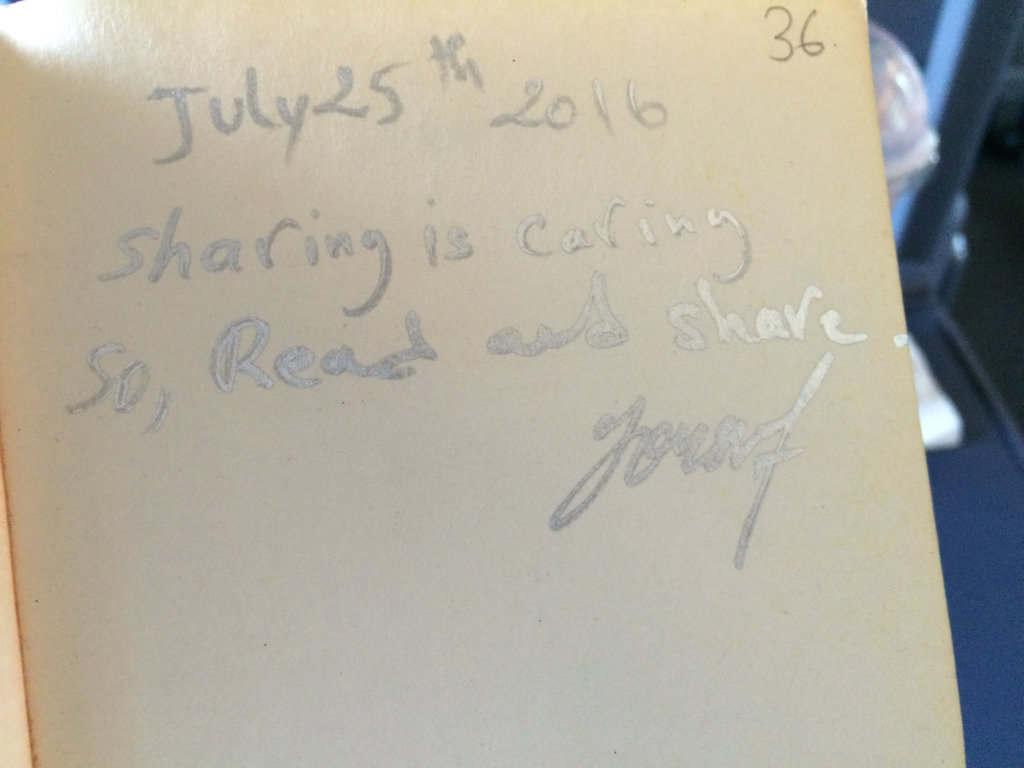 36
July 25th 2016
sharing is caring
So, Read and share.